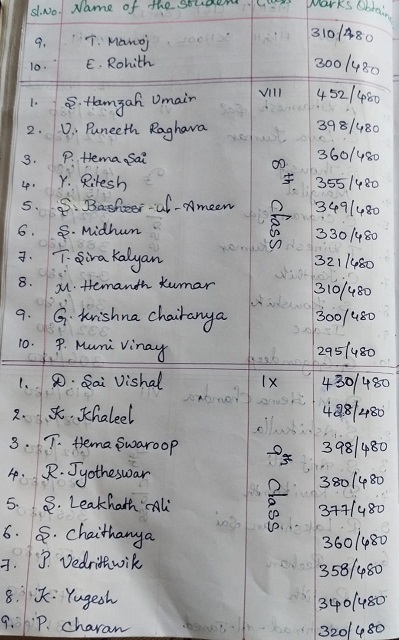 Sl.No. Name of the Student Class Marks Obtain
9. T. Manoj 310/480
10. E. Rohith 300/480
1. S. Hamzah Umair VIII 452/480
2. V. Puneeth Raghava 398/480
3. P. Hema Sai 360/480
4. Y. Ritesh 8th Class 355/480
5. S. Basheer-ul-Ameen 349/480
6. S. Midhun 330/480
7. T. Siva Kalyan 321/480
8. M. Hemanth Kumar 310/480
9. G. Krishna Chaitanya 300/480
10. P. Muni Vinay 295/480
1. D. Sai Vishal IX 430/480
2. K. Khaleel 428/480
3. T. Hema Swaroop 398/480
4. R. Jyotheswar 9th Class 380/480
5. S. Leakhath Ali 377/480
6. S. Chaithanya 360/480
7. P. Vedrithwik 358/480
8. K. Yugesh 340/480
9. P. Charan 320/480